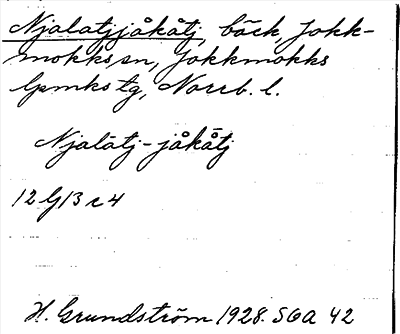 Njalatjjåkåtj, bäck, Jokk-
mokks sn, Jokkmokks
lpmks tg, Norrb. l.
Njalåtj-jåkåtj
12 G 13 c 4
H. Grundström 1928. SOA 42